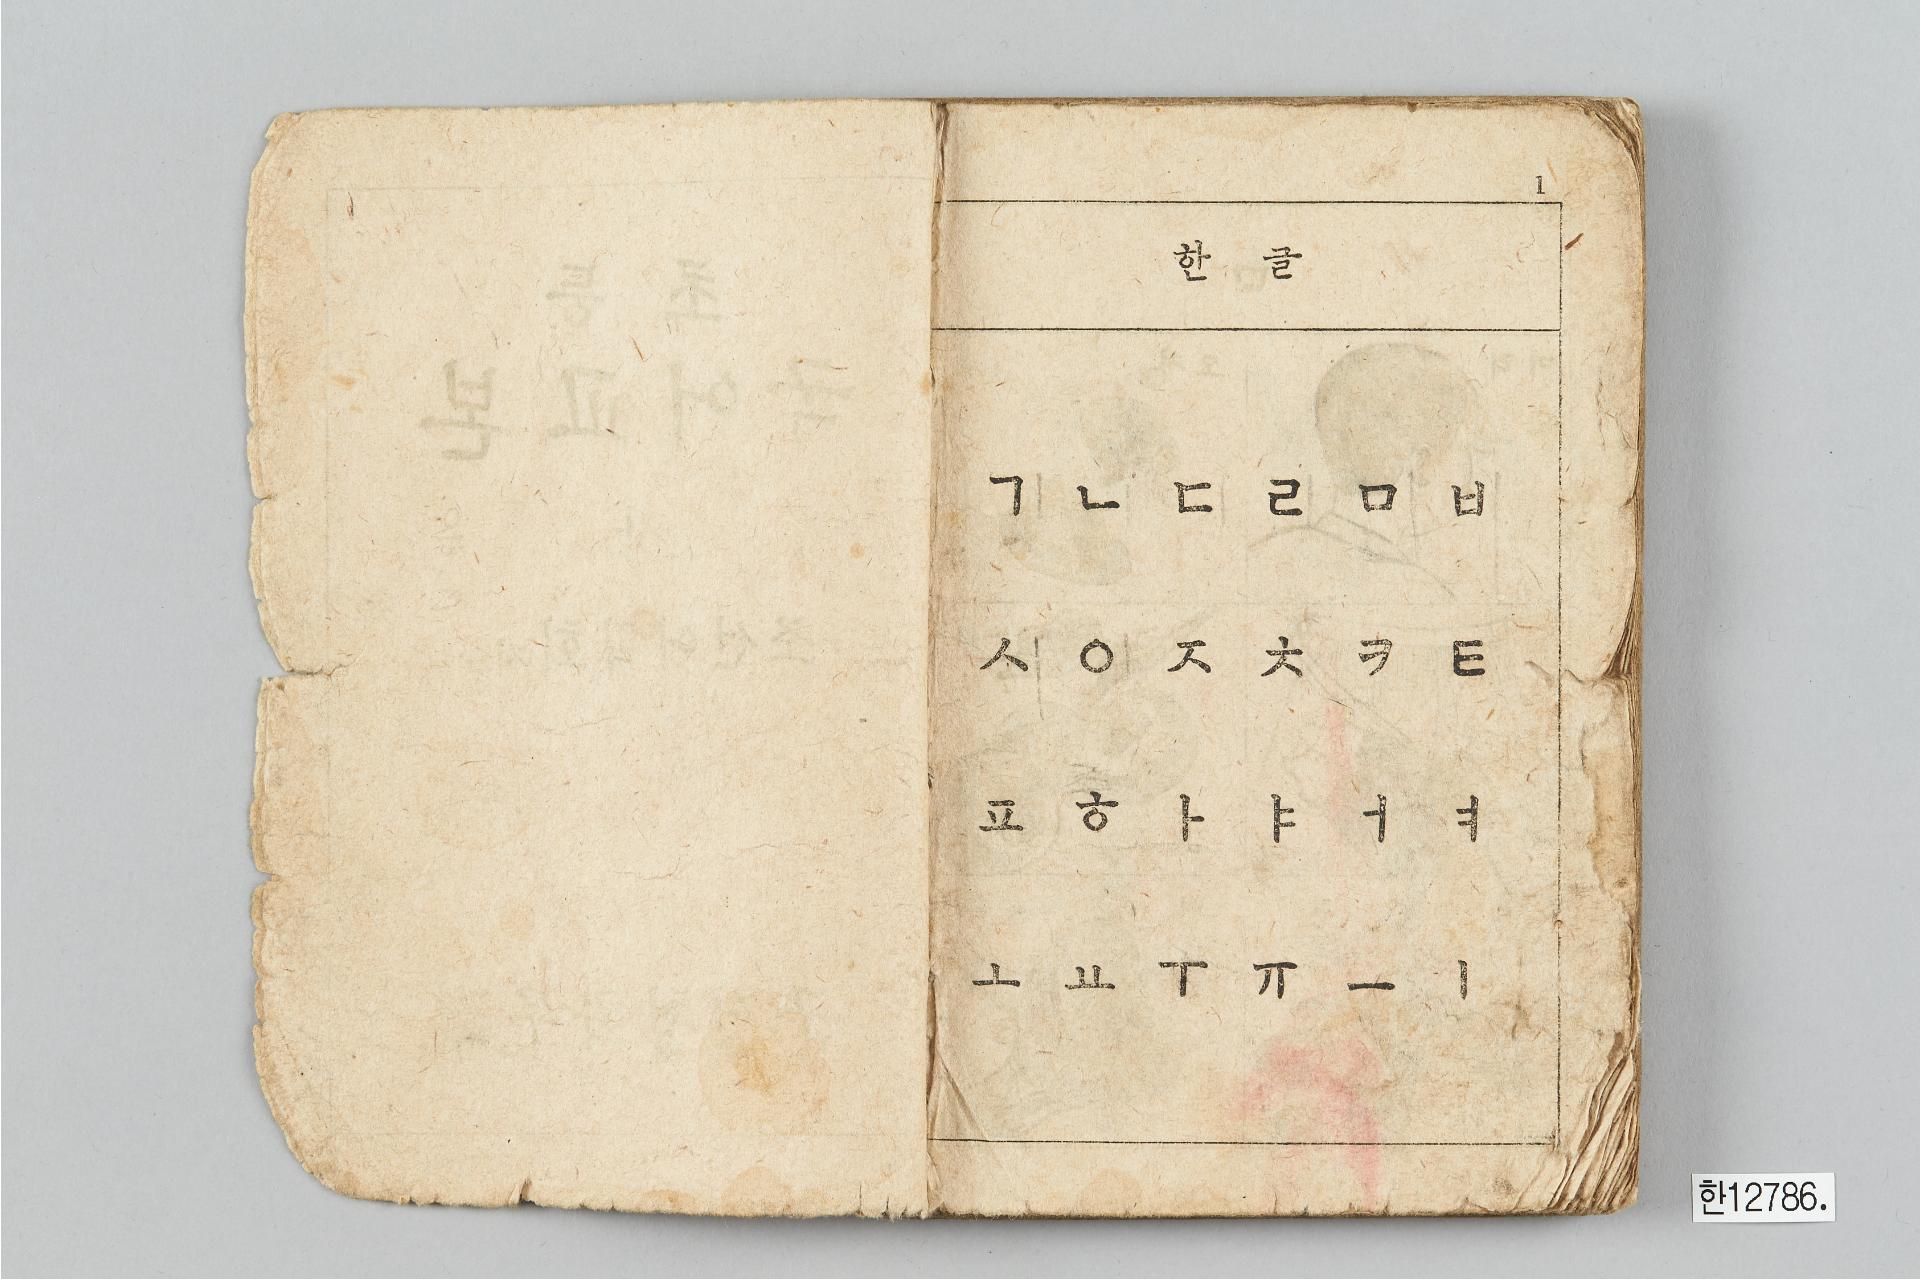 1
한 글
ㄱ ㄴ ㄷ ㄹ ㅁ ㅂ
ㅅ ㅇ ㅈ ㅊ ㅋ ㅌ
ㅍ ㅎ ㅏ ㅑ ㅓ ㅕ
ㅗ ㅛ ㅜ ㅠ ㅡ ㅣ
한12786.